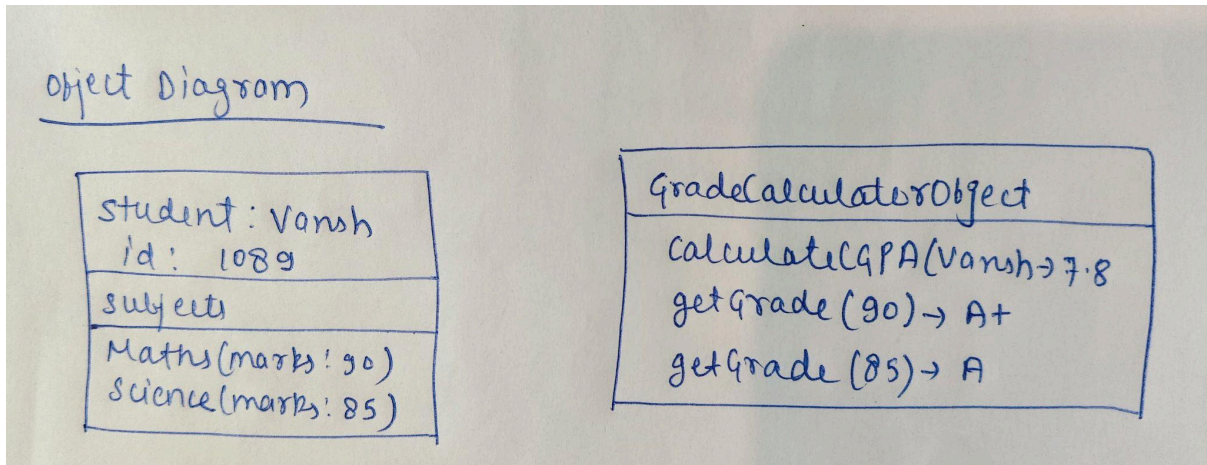 Object Diagram
student : Vansh
id : 1089
subjects
Maths (marks : 90)
Science (marks : 85)
GradeCalculatorObject
CalculateCGPA(Vansh→7.8
getGrade (90)→ A+
getGrade (85)→ A